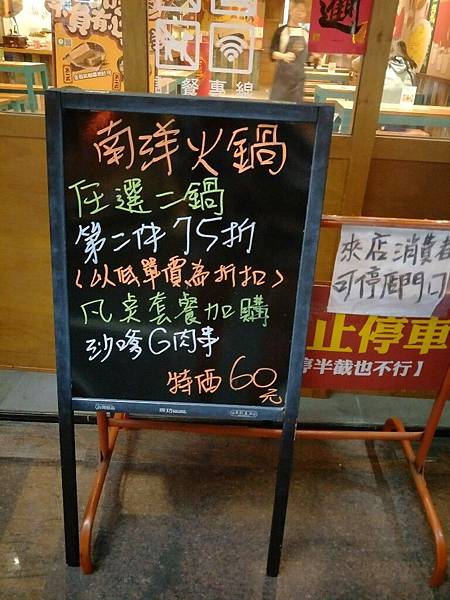 南洋火鍋
任選二鍋
第二件 75折
(以低單價為折扣)
凡桌套餐加購
沙嗲G肉串
特価60元
訂餐專線
來店消費者
可停店門口
止停車
停半截也不行】